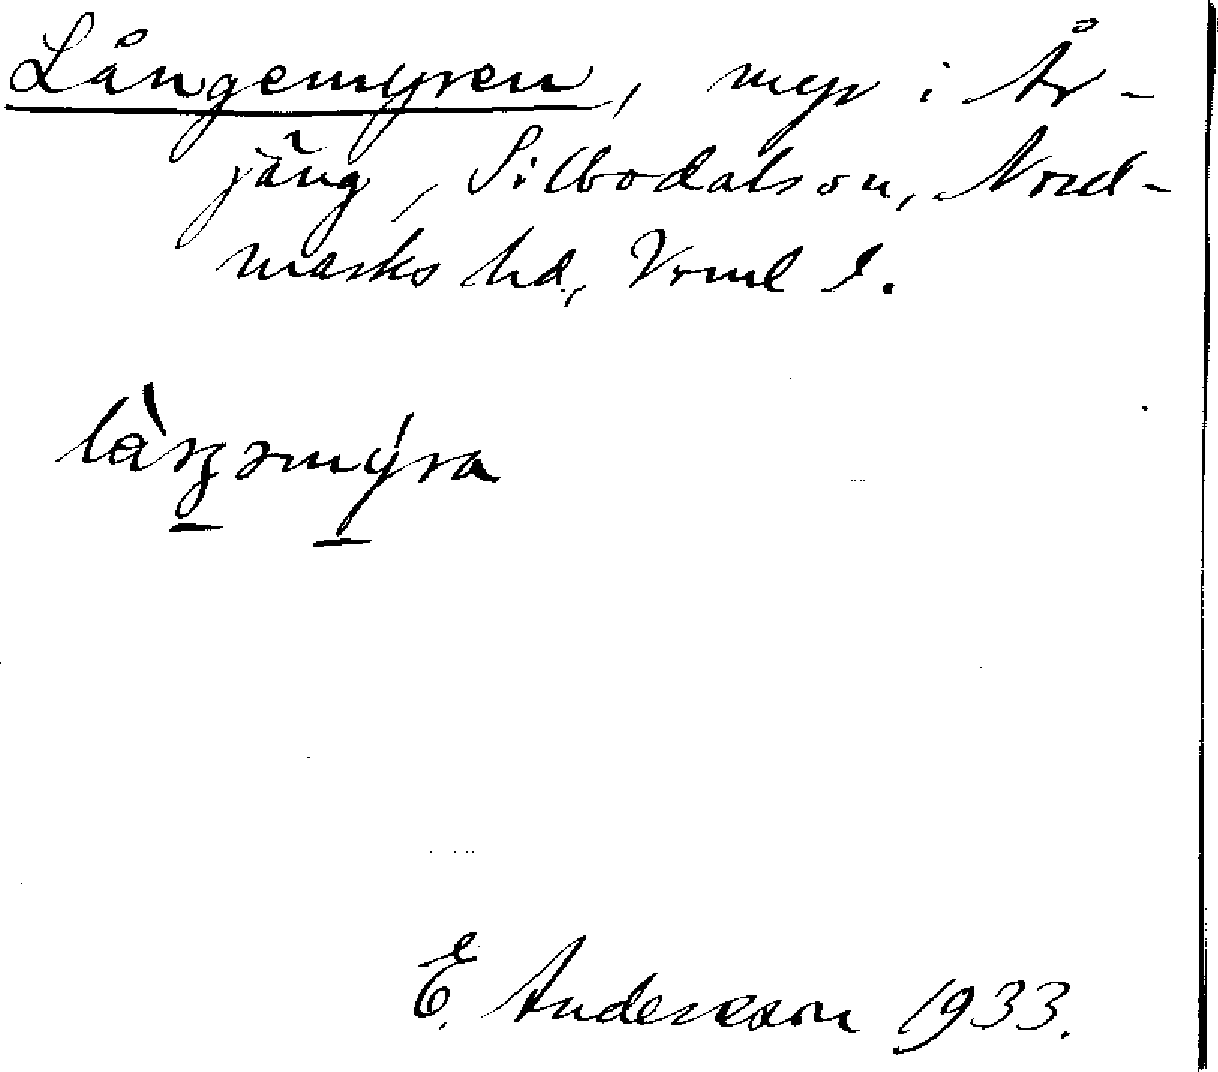 Långemyren, myr i År-
jäng, Silbodals sn, Nord-
marks hd, Vrml l.
làŋəmýra
E. Andersson 1933.